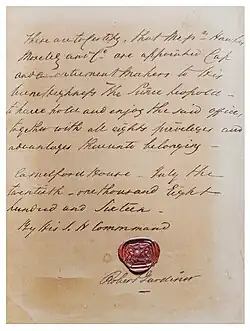 These are to Certify, that Messrs. Hawkes
Moseley and Co. are appointed Cap
and accoutrement Makers to His
Serene Highness the Prince Leopold -
to have hold and enjoy the said office,
together with all rights priveleges and
advantages thereunto belonging -
Camelford House - July the
twentieth - one thousand Eight
hundred and Sixteen -
By His S. H Command
Robert Gardiner